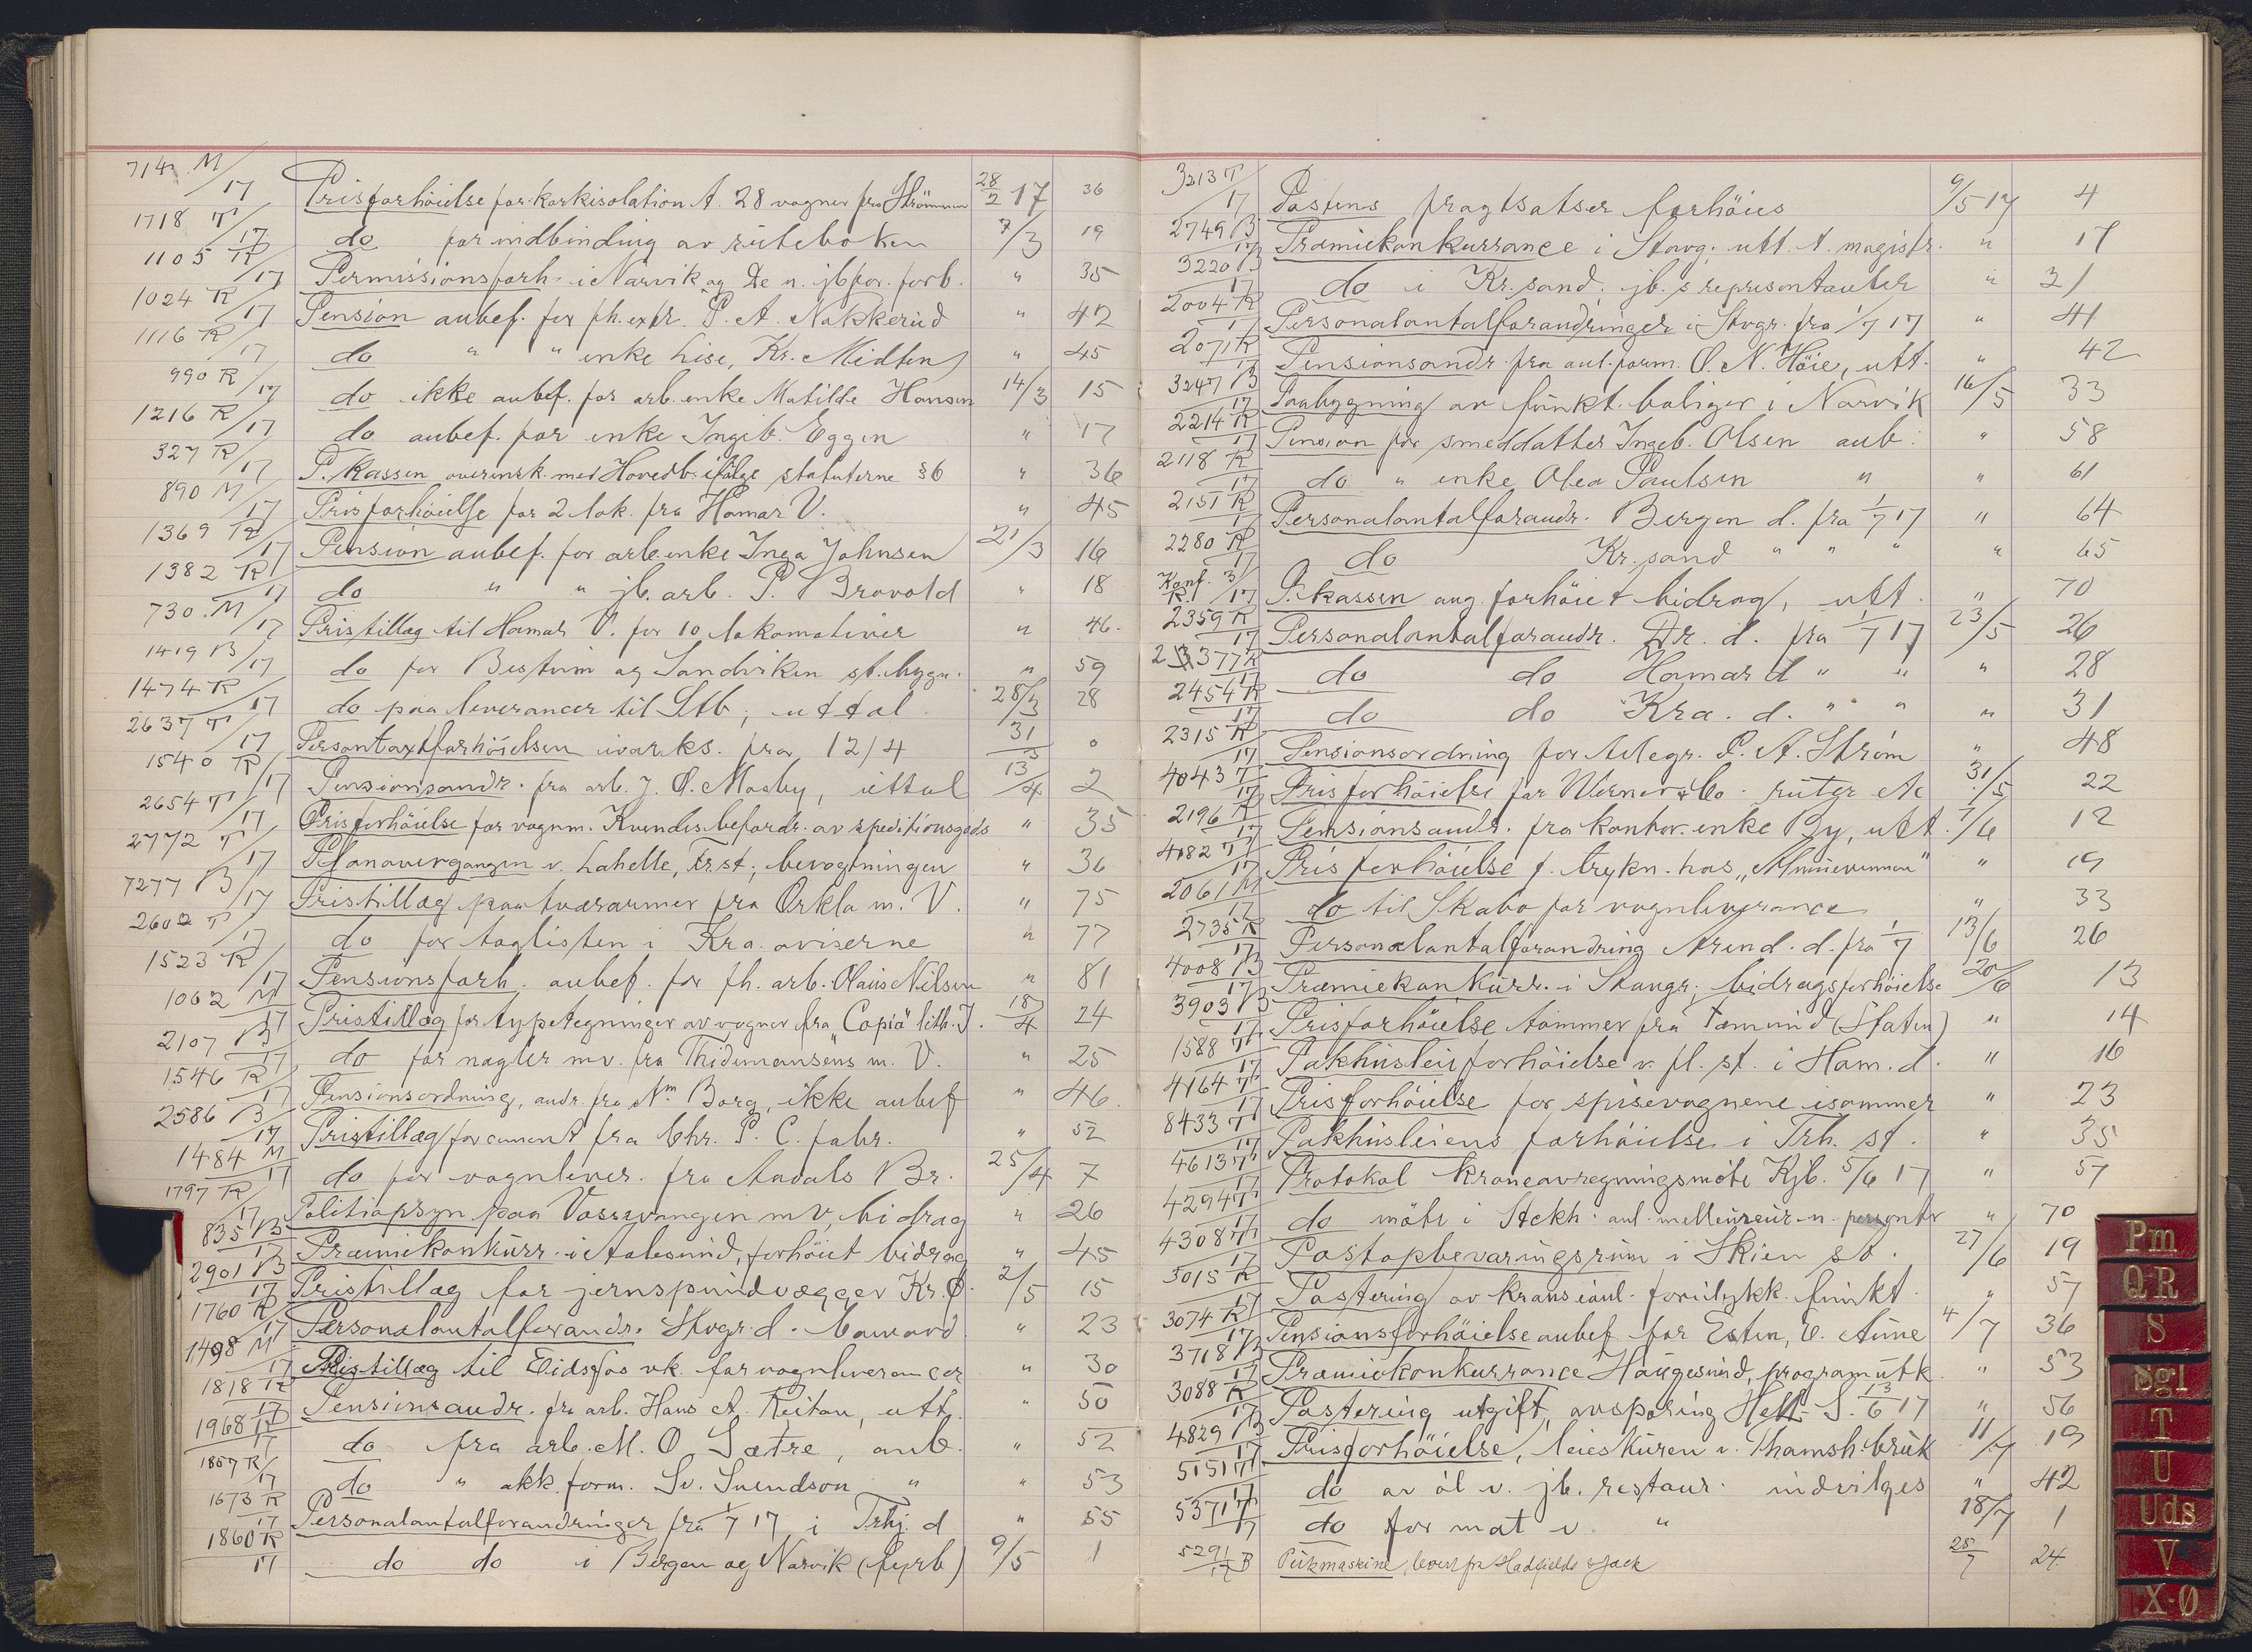 714 M/17 Prisforhöielse for korkisolation A. 28 vogner fra Strömmen 28/2 17 36
1718 T/17 do for indbinding av ruteboken 7/3 19
1105 R/17 Permissionsforh. i Narvik og De n. jbfor. forb. " 35
1024 R/17 Pension anbef. for fh. extr. P. A. Nakkerud " 42
1116 R/17 do " " enke Lise, Kr. Midten " 45
990 R/17 do ikke anbef. for arb. enke Matilde Hansen 14/3 15
1216 R/17 do anbef. for enke Ingeb. Eggen " 17
327 R/17 P. kassen overensk. med Hovedb. ifölge statuterne §6 " 36
890 M/17 Prisforhöielse for 2 lok. fra Hamar V. " 45
1369 R/17 Pension anbef. for arb. enke Inga Johnsen 21/3 16
1382 R/17 do " " jb. arb. P. Brovold " 18
730 M/17 Pristillæg til Hamar V. for 10 lokomotiver " 46
1419 B/17 do for Bestum og Sandviken st. bygn. " 59
1474 R/17 do paa leverancer til Stb, uttal 28/3 28
2637 T/17 Persontaxtforhöielsen iverks. fra 12/4 31/3 0
1540 R/17 Pensionsandr. fra arb. J. O. Mosby, uttal 13/4 2
2654 T/17 Prisforhöielse for vognm. Kvendes befordr. av speditionsgods " 35
2772 T/17 Planovergangen v. Lahelle, Tr.st; bevogtningen " 36
7277 B/17 Pristillæg paa tværarmer fra Orkla m. V. " 75
2602 T/17 do for toglisten i Kra. aviserne " 77
1523 R/17 Pensionsforh. anbef. for fh. arb. Olaus Nilsen " 81
1062 M/17 Pristillæg for typetegninger av vogner fra "Copia" lith. I. 18/4 24
2107 B/17 do for nagler mv. fra Thidemansens m. V. " 25
1546 R/17 Pensionsordning, andr. fra Nm Borg, ikke anbef " 46
2586 B/17 Pristillæg for cement fra Chr. P. C. fabr. " 52
1484 M/17 do for vognlever. fra Aadals Br. 25/4 7
1797 R/17 Politiopsyn paa Vossevangen mv, bidrag " 26
835 B/17 Præmiekonkurr. i Aalesund, forhöiet bidrag " 45
2901 B/17 Pristillæg for jernspundvægger Kr. Ø. 2/5 15
1760 R/17 Personalantalforandr. Stvgr. d. " 23
1498 M/17 Pristillæg til Eidsfos vk. for vognleverancer " 30
1818 R/17 Pensionsandr. fra arb. Hans A. Reitan, utt. " 50
1968 R/17 do fra arb. M. O. Sætre, anb. " 52
1857 R/17 do " akk. form. Sv. Svendson " " 53
1673 R/17 Personalantalforandringer fra 1/7 17 i Trhj. d " 55
1860 R/17 do do i Bergen og Narvik (fyrb) 9/5 1
3213 T/17 Postens fragtsatser forhöies 9/5 17 4
2749 B/17 Præmiekonkurrance i Stavg. utt. A. magistr. " 17
3220 B/17 do i Kr.sand. jb.s representanter " 31
2004 R/17 Personalantalforandringer i Stvgr. fra 1/7 17 " 41
2071 R/17 Pensionsandr. fra anl. form. O. N. Höie, utt. " 42
3247 B/17 Paabygning av funkt. boliger i Narvik 16/5 33
2214 R/17 Pension for smeddatter Ingeb. Olsen anb. " 58
2118 R/17 do " enke Olea Paulsen " " 61
2151 R/17 Personalantalforandr. Bergen d. fra 1/7 17 " 64
2280 R/17 do Kr.sand " " " " 65
Konf. 3/R. 17 P. kassen ang. forhöiet bidrag, utt. " 70
2359 R/17 Personalantalforandr. Dr. d. fra 1/7 17 23/5 26
2377 R/17 do do Hamar d " " " 28
2454 R/17 do do Kra. d. " " " 31
2315 R/17 Pensionsordning for telegr. P. A. Ström " 48
4043 T/17 Prisforhöielse for Werner & Co. ruter etc 31/5 22
2196 R/17 Pensionsandr. fra kontor. enke By, utt. 7/6 12
4182 T/17 Prisforhöielse f. trykn. hos " 19
2061 M/17 do til Skabo for vognleverance " 33
2735 R/17 Personalantalforandring Arend. d. fra 1/7 13/6 26
4008 B/17 Præmiekonkurr. i Stavgr; bidragsforhöielse 20/6 13
3903 B/17 Prisforhöielse tömmer fra Fæmund (Staten) " 14
1588 T/17 Pakhusleieforhöielse v. fl. st. i Ham. d. " 16
4164 T/17 Prisforhöielse for spisevognene isommer " 23
8433 T/17 Pakhusleiens forhöielse i Trh. st. " 35
4613 T/17 Protokol kraneavregningsmöte Kjb. 5/6 17 " 57
4294 T/17 do möte i Stckh. anl. mellemrigs n. persontr " 70
4308 T/17 Postopbevaringsrum i Skien st. 27/6 19
3015 R/17 Postering av krans i anl. forulykk. funkt. " 57
3074 R/17 Pensionsforhöielse anbef for Esten, E. Aune 4/7 36
3718 B/17 Præmiekonkurrance Haugesund, program utk. " 53
3088 R/17 Postering utgift avsporing Hell-S. 13/6 17 " 56
4829 B/17 Prisforhöielse, leieskuren v. Thamsh. bruk 11/7 19
5151 T/17 do av öl v. jb. restaur. indvilges " 42
5371 T/17 do for mat v. " 18/7 1
5291/17 B Pukmaskine, lever fra Hadfields & Jack 25/7 24
Pm
QR
S
Sgl
T
U
Uds
V
X-Ø